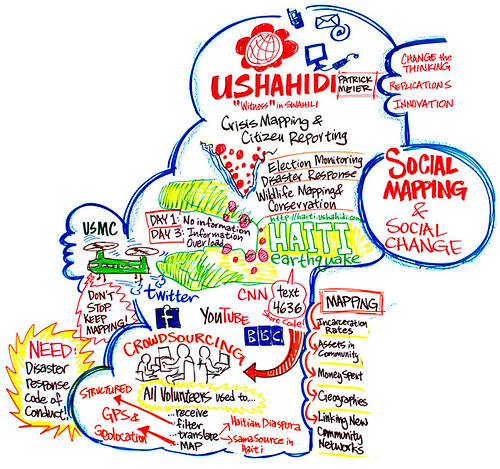 USHAHIDI
PATRICK
MEIER
"Witness" in SWAHILI
Crisis Mapping &
Citizen Reporting
Election Monitoring
Disaster Response
Wildlife Mapping &
Conservation
CHANGE the
THINKING
REPLICATIONS
INNOVATION
SOCIAL
MAPPING
&
SOCIAL
CHANGE
USMC
DAY 1: No information
DAY 3: Information
Overload
http://haiti.ushahidi.com
HAITI
earthquake
DON'T
STOP
KEEP
MAPPING!
twitter
CNN
text
4636
Short Code!
f
YOUTUBE
BBC
CROWDSOURCING
NEED:
Disaster
Response
Code of
Conduct!
STRUCTURED
GPS &
Geolocation
All Volunteers used to...
...receive
filter
...translate
...MAP
Haitian Diaspora
SamaSource in
Haiti
MAPPING
Incarceration
Rates
Assets in
Community
Money Spent
Geographies
Linking New
Community
Networks